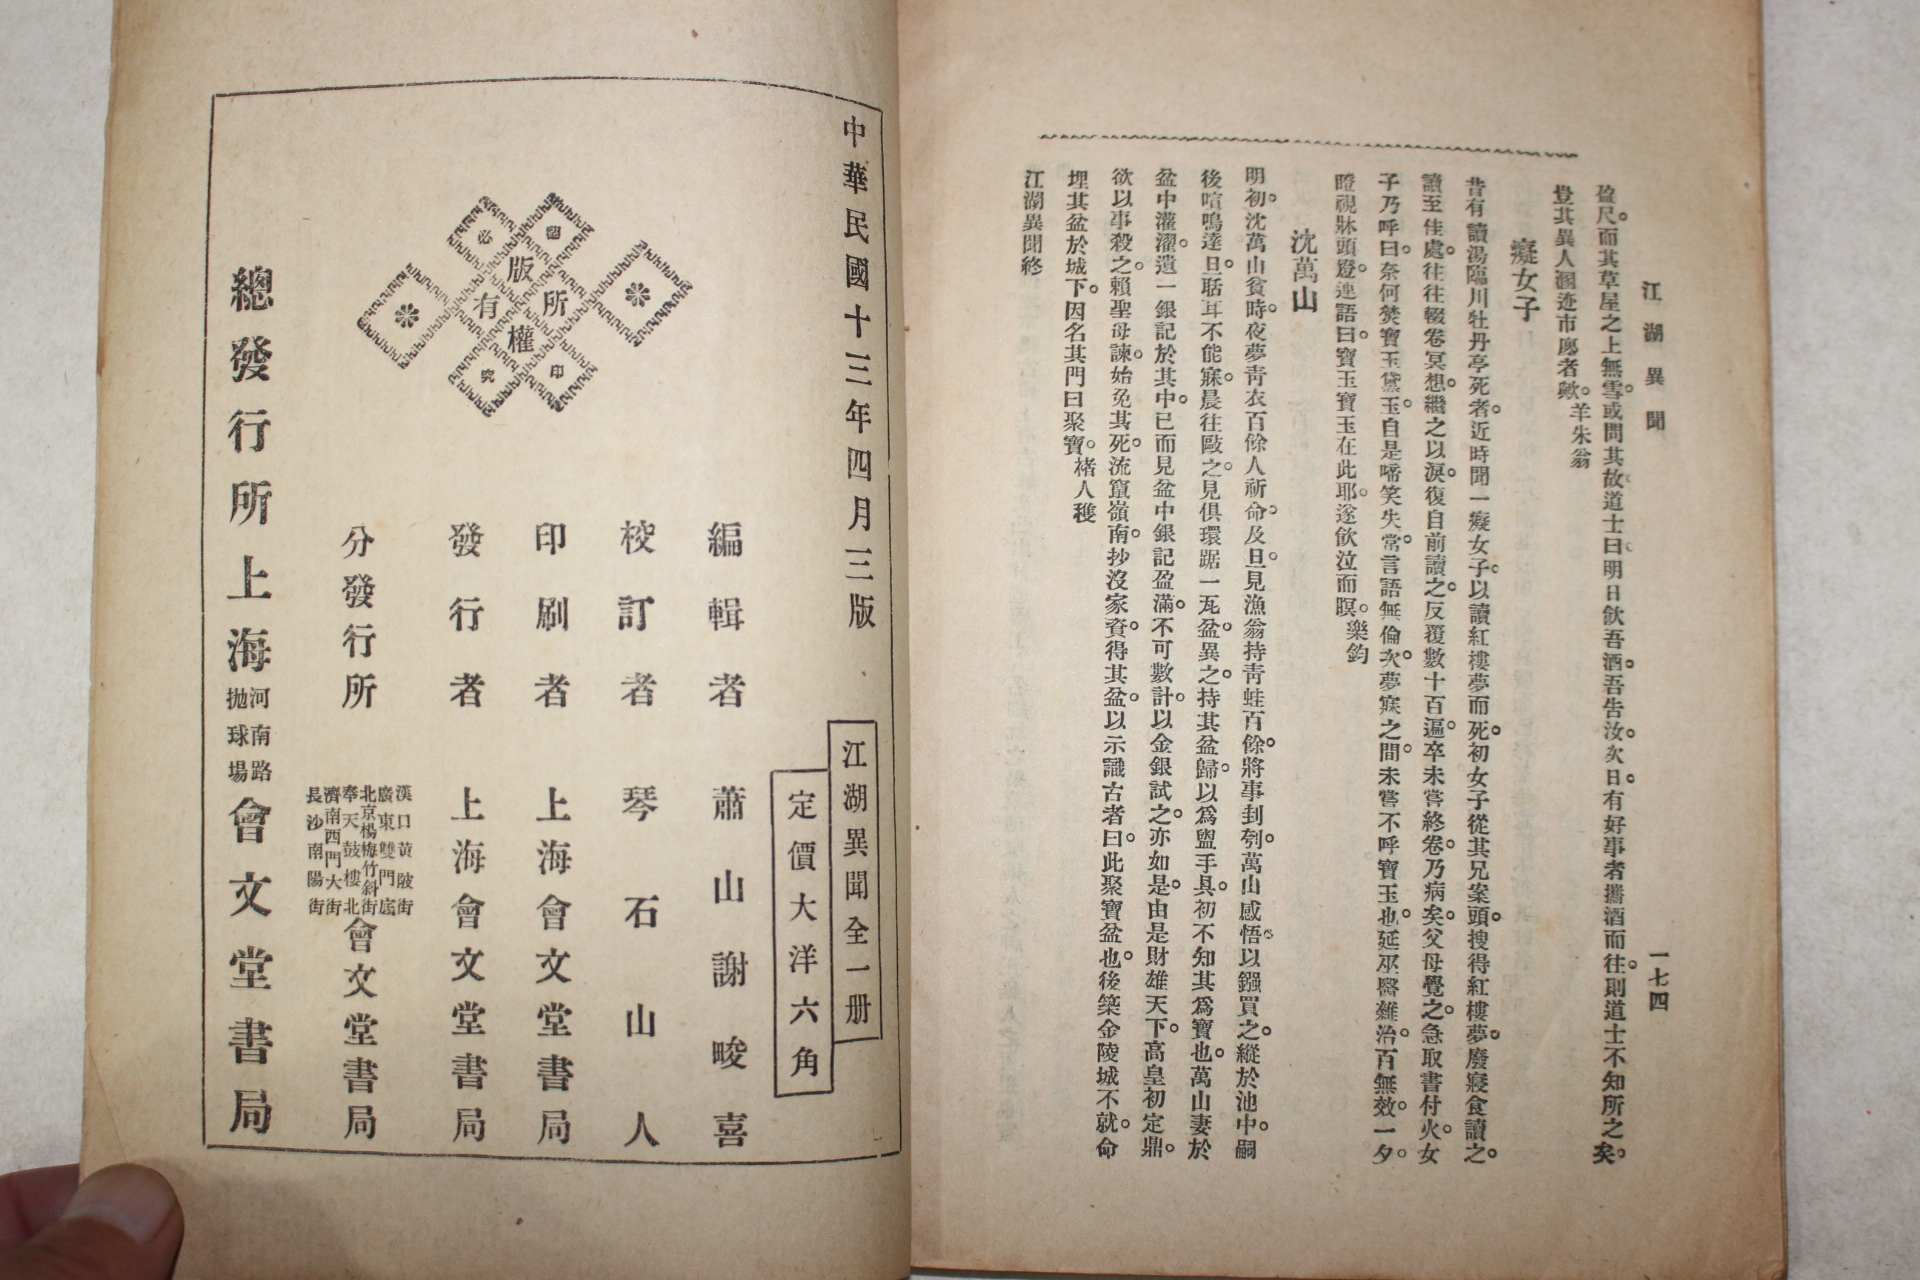 江湖異聞
一七四
盈尺。而其草屋之上無雪。或問其故道士曰明日飲吾酒。吾告汝。次日。有好事者攜酒而往。則道士不知所之矣。
豈其異人溷迹市廛者歟。羊朱翁
癡女子
昔有讀湯臨川牡丹亭死者。近時聞一癡女子。以讀紅樓夢而死。初女子從其兄案頭。搜得紅樓夢。廢寢食讀之。
讀至佳處。往往輟卷冥想。繼之以淚。復自前讀之。反覆數十百遍。卒未嘗終卷。乃病矣。父母覺之。急取書付火。女
子乃呼曰。奈何焚寶玉黛玉。自是啼笑失常。言語無倫次。夢寐之間。未嘗不呼寶玉也。延巫醫雜治。百無效。一夕。
瞪視牀頭燈。連語曰。寶玉寶玉在此耶。遂飲泣而瞑。樂鈞
沈萬山
明初。沈萬山貧時。夜夢青衣百餘人祈命。及旦。見漁翁持青蛙百餘。將事刲刳。萬山感悟。以鏹買之。縱於池中。嗣
後喧鳴達旦。聒耳不能寐。晨往毆之。見俱環踞一瓦盆。異之。持其盆歸。以爲盥手具。初不知其爲寶也。萬山妻於
盆中灌濯。遺一銀記於其中。已而見盆中銀記盈滿。不可數計。以金銀試之。亦如是。由是財雄天下。高皇初定鼎。
欲以事殺之。賴聖母諫。始免其死。流竄嶺南。抄沒家資。得其盆。以示識古者。曰。此聚寶盆也。後築金陵城不就。命
埋其盆於城下。因名其門曰聚寶。楮人穫
江湖異聞終
中華民國十三年四月三版
江湖異聞全一册
定價大洋六角
編輯者 蕭山謝畯喜
校訂者 琴石山人
印刷者 上海會文堂書局
發行者 上海會文堂書局
分發行所
漢口黃陂街
廣東雙門底
北京楊梅竹斜街
奉天鼓樓北
濟南西門大街
長沙南陽街
會文堂書局
總發行所上海
河南路
拋球場
會文堂書局
版權
所有
翻印
必究